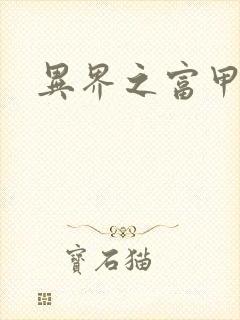 異界之富甲
寶石猫